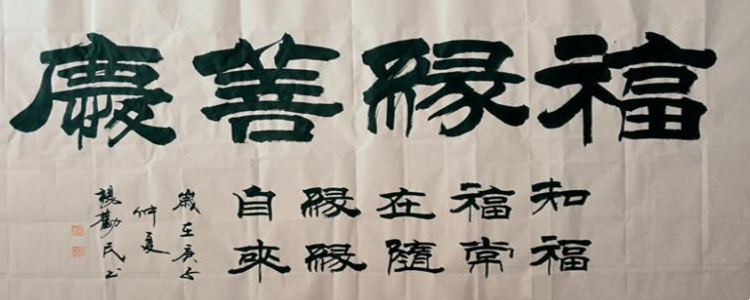 福緣善慶
知福
福常
在隨
緣緣
自來
歲在庚子
仲夏
民书